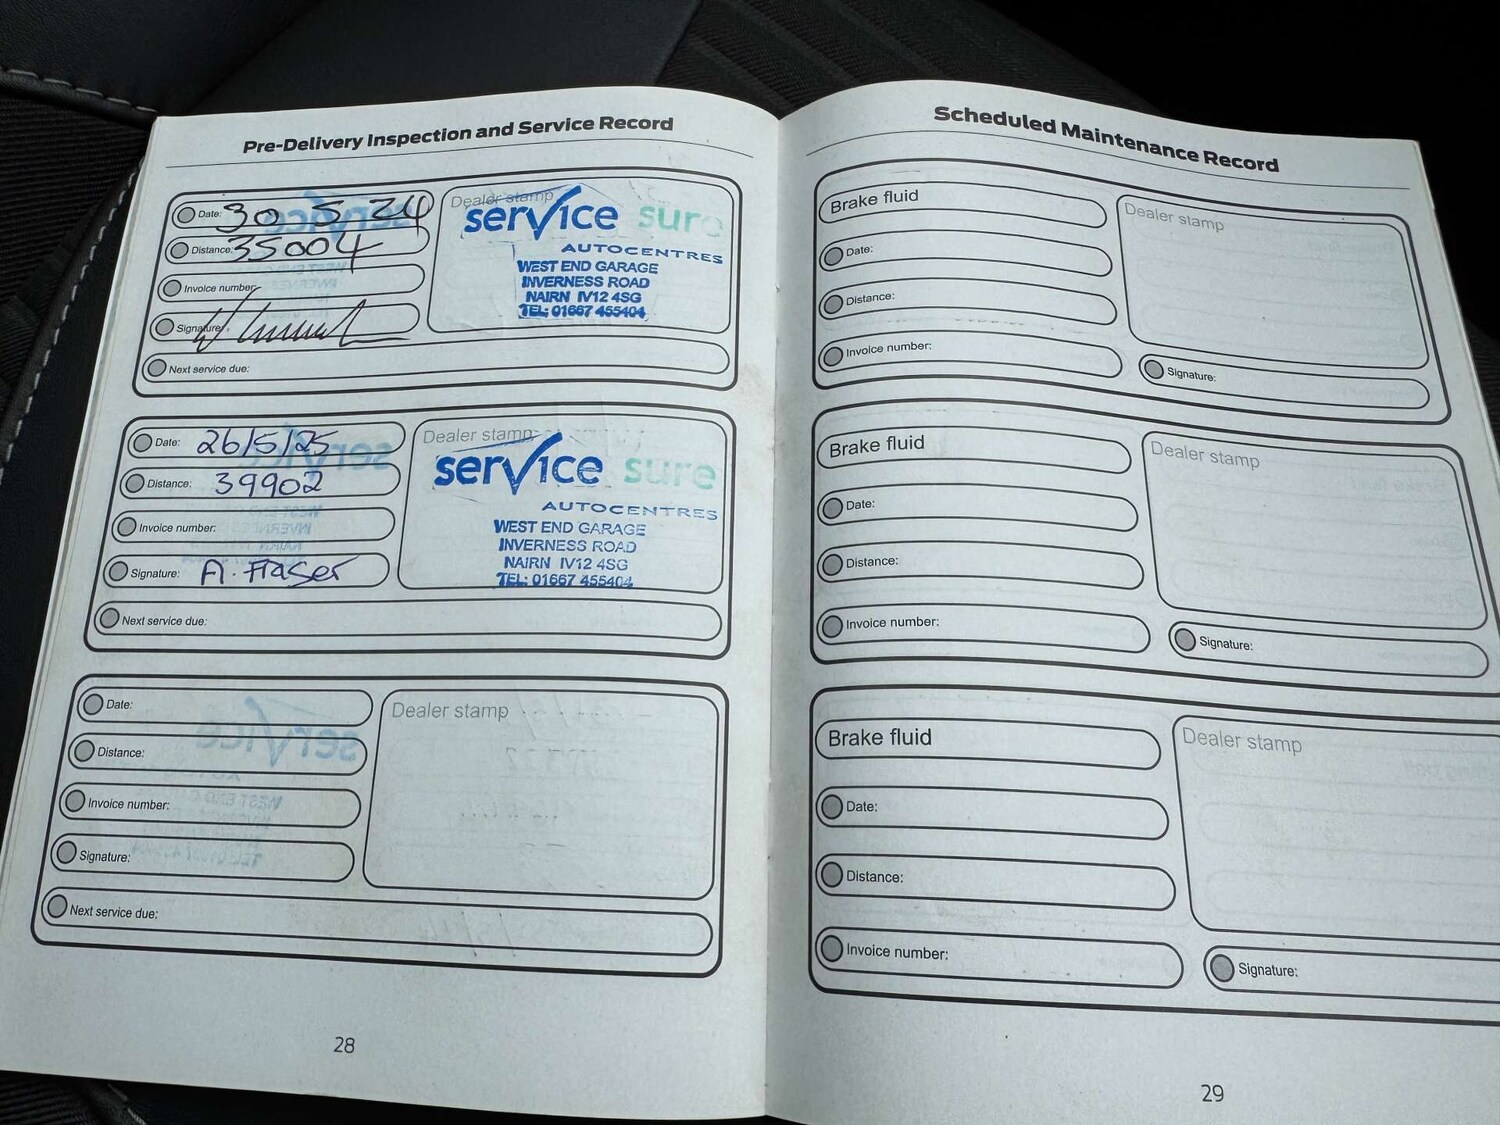 Pre-Delivery Inspection and Service Record
Date: 30 5 24
Distance: 35004
Invoice number:
Signature:
Next service due:
Dealer stamp
service sure
AUTOCENTRES
WEST END GARAGE
INVERNESS ROAD
NAIRN IV12 4SG
TEL: 01667 455404
Date: 26/5/25
Distance: 39902
Invoice number:
Signature: A. Fraser
Next service due:
Dealer stamp
service sure
AUTOCENTRES
WEST END GARAGE
INVERNESS ROAD
NAIRN IV12 4SG
TEL: 01667 455404
Date:
Distance:
Invoice number:
Signature:
Next service due:
Dealer stamp
28
Scheduled Maintenance Record
Brake fluid
Date:
Distance:
Invoice number:
Dealer stamp
Signature:
Brake fluid
Date:
Distance:
Invoice number:
Dealer stamp
Signature:
Brake fluid
Date:
Distance:
Invoice number:
Dealer stamp
Signature:
29